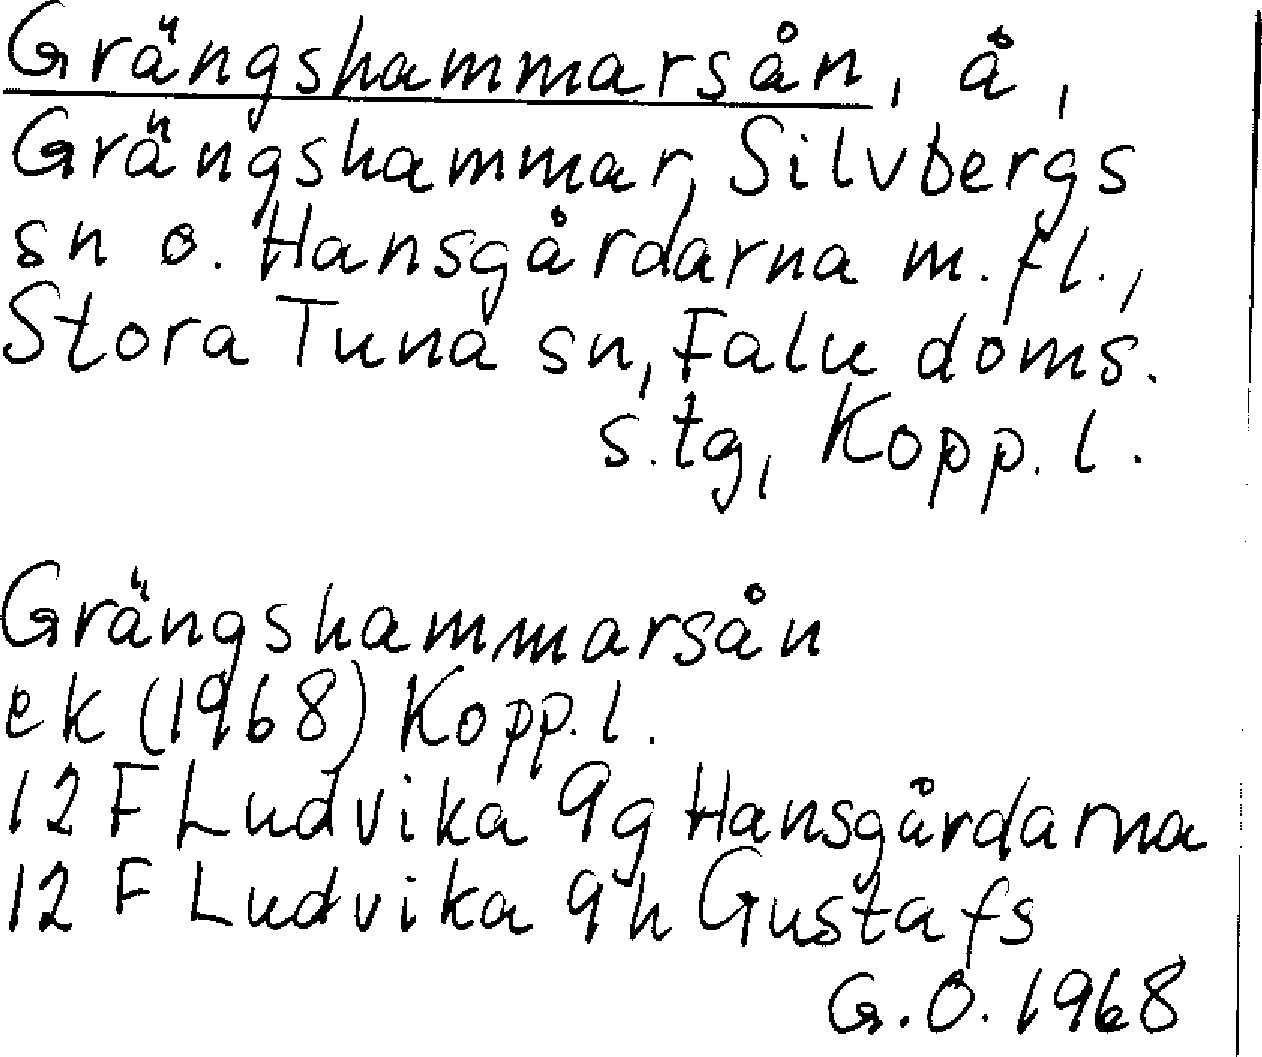 Grängshammarsån, å,
Grängshammar, Silvbergs
sn o. Hansgårdarna m.fl.,
Stora Tuna sn, Falu doms.
s.tg, Kopp. l.
Grängshammarsån
ek (1968) Kopp. l.
12 F Ludvika 9g Hansgårdarna
12 F Ludvika 9h Gustafs
G.O. 1968